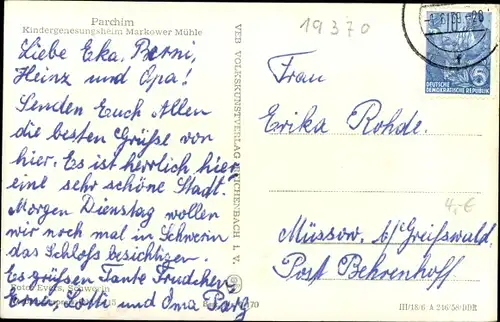 Parchim
Kindergenesungsheim Markower Mühle
Liebe Eka, Berni,
Heinz und Opa!
Senden Euch Allen
die besten Grüße von
hier. Es ist herrlich hier,
eine sehr schöne Stadt.
Morgen Dienstag wollen
wir noch mal in Schwerin
das Schloß besichtigen.
Es grüßen Tante Trudchen
Erni, Lotti und Oma Parz
Foto: Evers, Schwerin
VEB VOLKSKUNSTVERLAG REICHENBACH I. V.
19370
DEUTSCHE
DEMOKRATISCHE REPUBLIK
5
Frau
Erika Rohde.
4,-€
Müssow. b/Greifswald
Post Behrenhoff
III/18/6 A 246/58 DDR